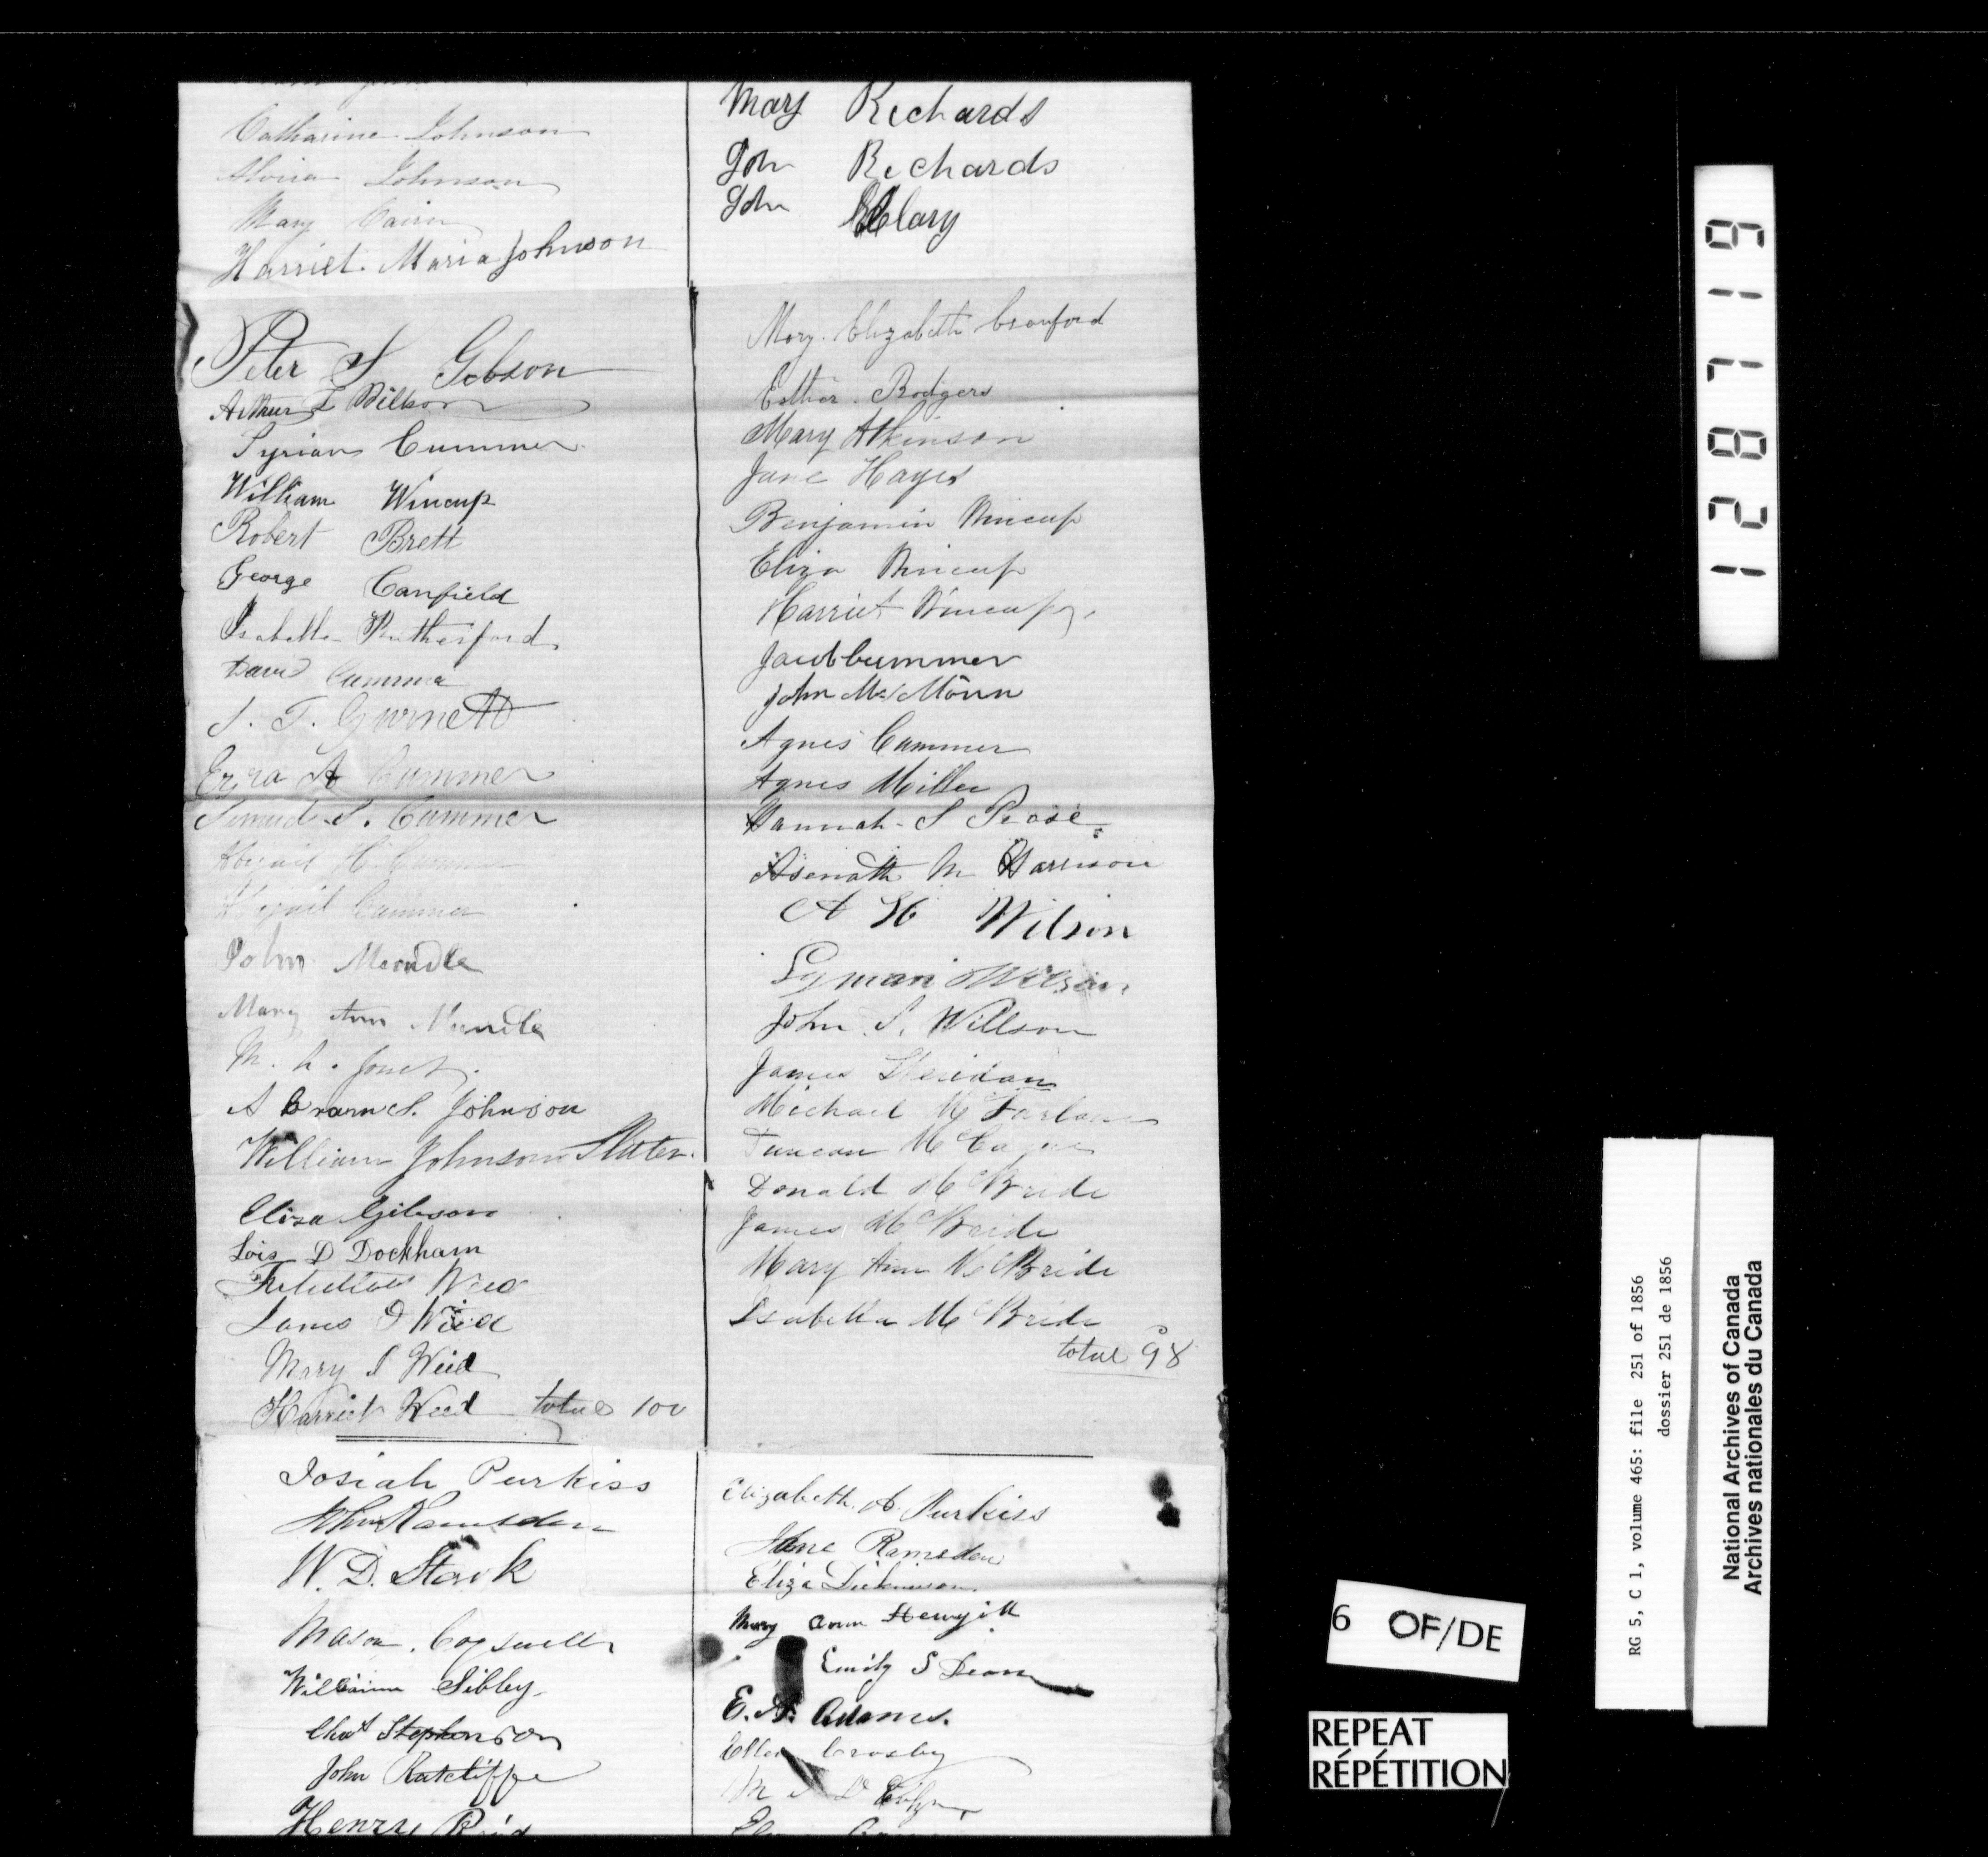 Catharine Johnson
Johnson
Mary
Harriet Maria Johnson
Peter S Gibson
Arthur L Willson
Cummer
William Wincup
Robert Brett
George Canfield
Isabella Rutherford
David Cummer
J. T. Gurnett
Ezra A Cummer
Samuel S. Cummer
Abigail H. Cummer
Abigail Cummer
John Mundle
Mary Ann Mundle
M. h. Jones
Abram S. Johnson
William Johnson Slater
Eliza Gibson
Lois D Dockham
Weed
James D Weed
Mary S Weed
Harriet Weed total 100
Josiah Purkiss
John Ramsden
W. D. Stark
Mason Cogswell
William Sibley
Chas Stephenson
John Ratcliffe
Henry Reid
Mary Richards
John Richards
John Clary
Mary Elizabeth Crauford
Esther Rodgers
Mary Atkinson
Jane Hayes
Benjamin Wincup
Eliza Wincup
Harriet Wincup
Jacob Cummer
John
Agnes Cummer
Agnes Miller
Hannah S Pease
Asenath M Harrison
A H Wilson
Lyman Willson
John S. Willson
James Sheridan
Michael McFarlane
Duncan
Donald McBride
James McBride
Mary Ann McBride
Isabella McBride
total 98
Elizabeth A. Purkiss
Jane Ramsden
Eliza Dickinson
Mary Ann Hewgill
Emily S Dean
E. A. Adams.
Ellen Crosby
M
1287119
6 OF/DE
REPEAT
RÉPÉTITION
RG 5, C 1, volume 465: file 251 of 1856
dossier 251 de 1856
National Archives of Canada
Archives nationales du Canada